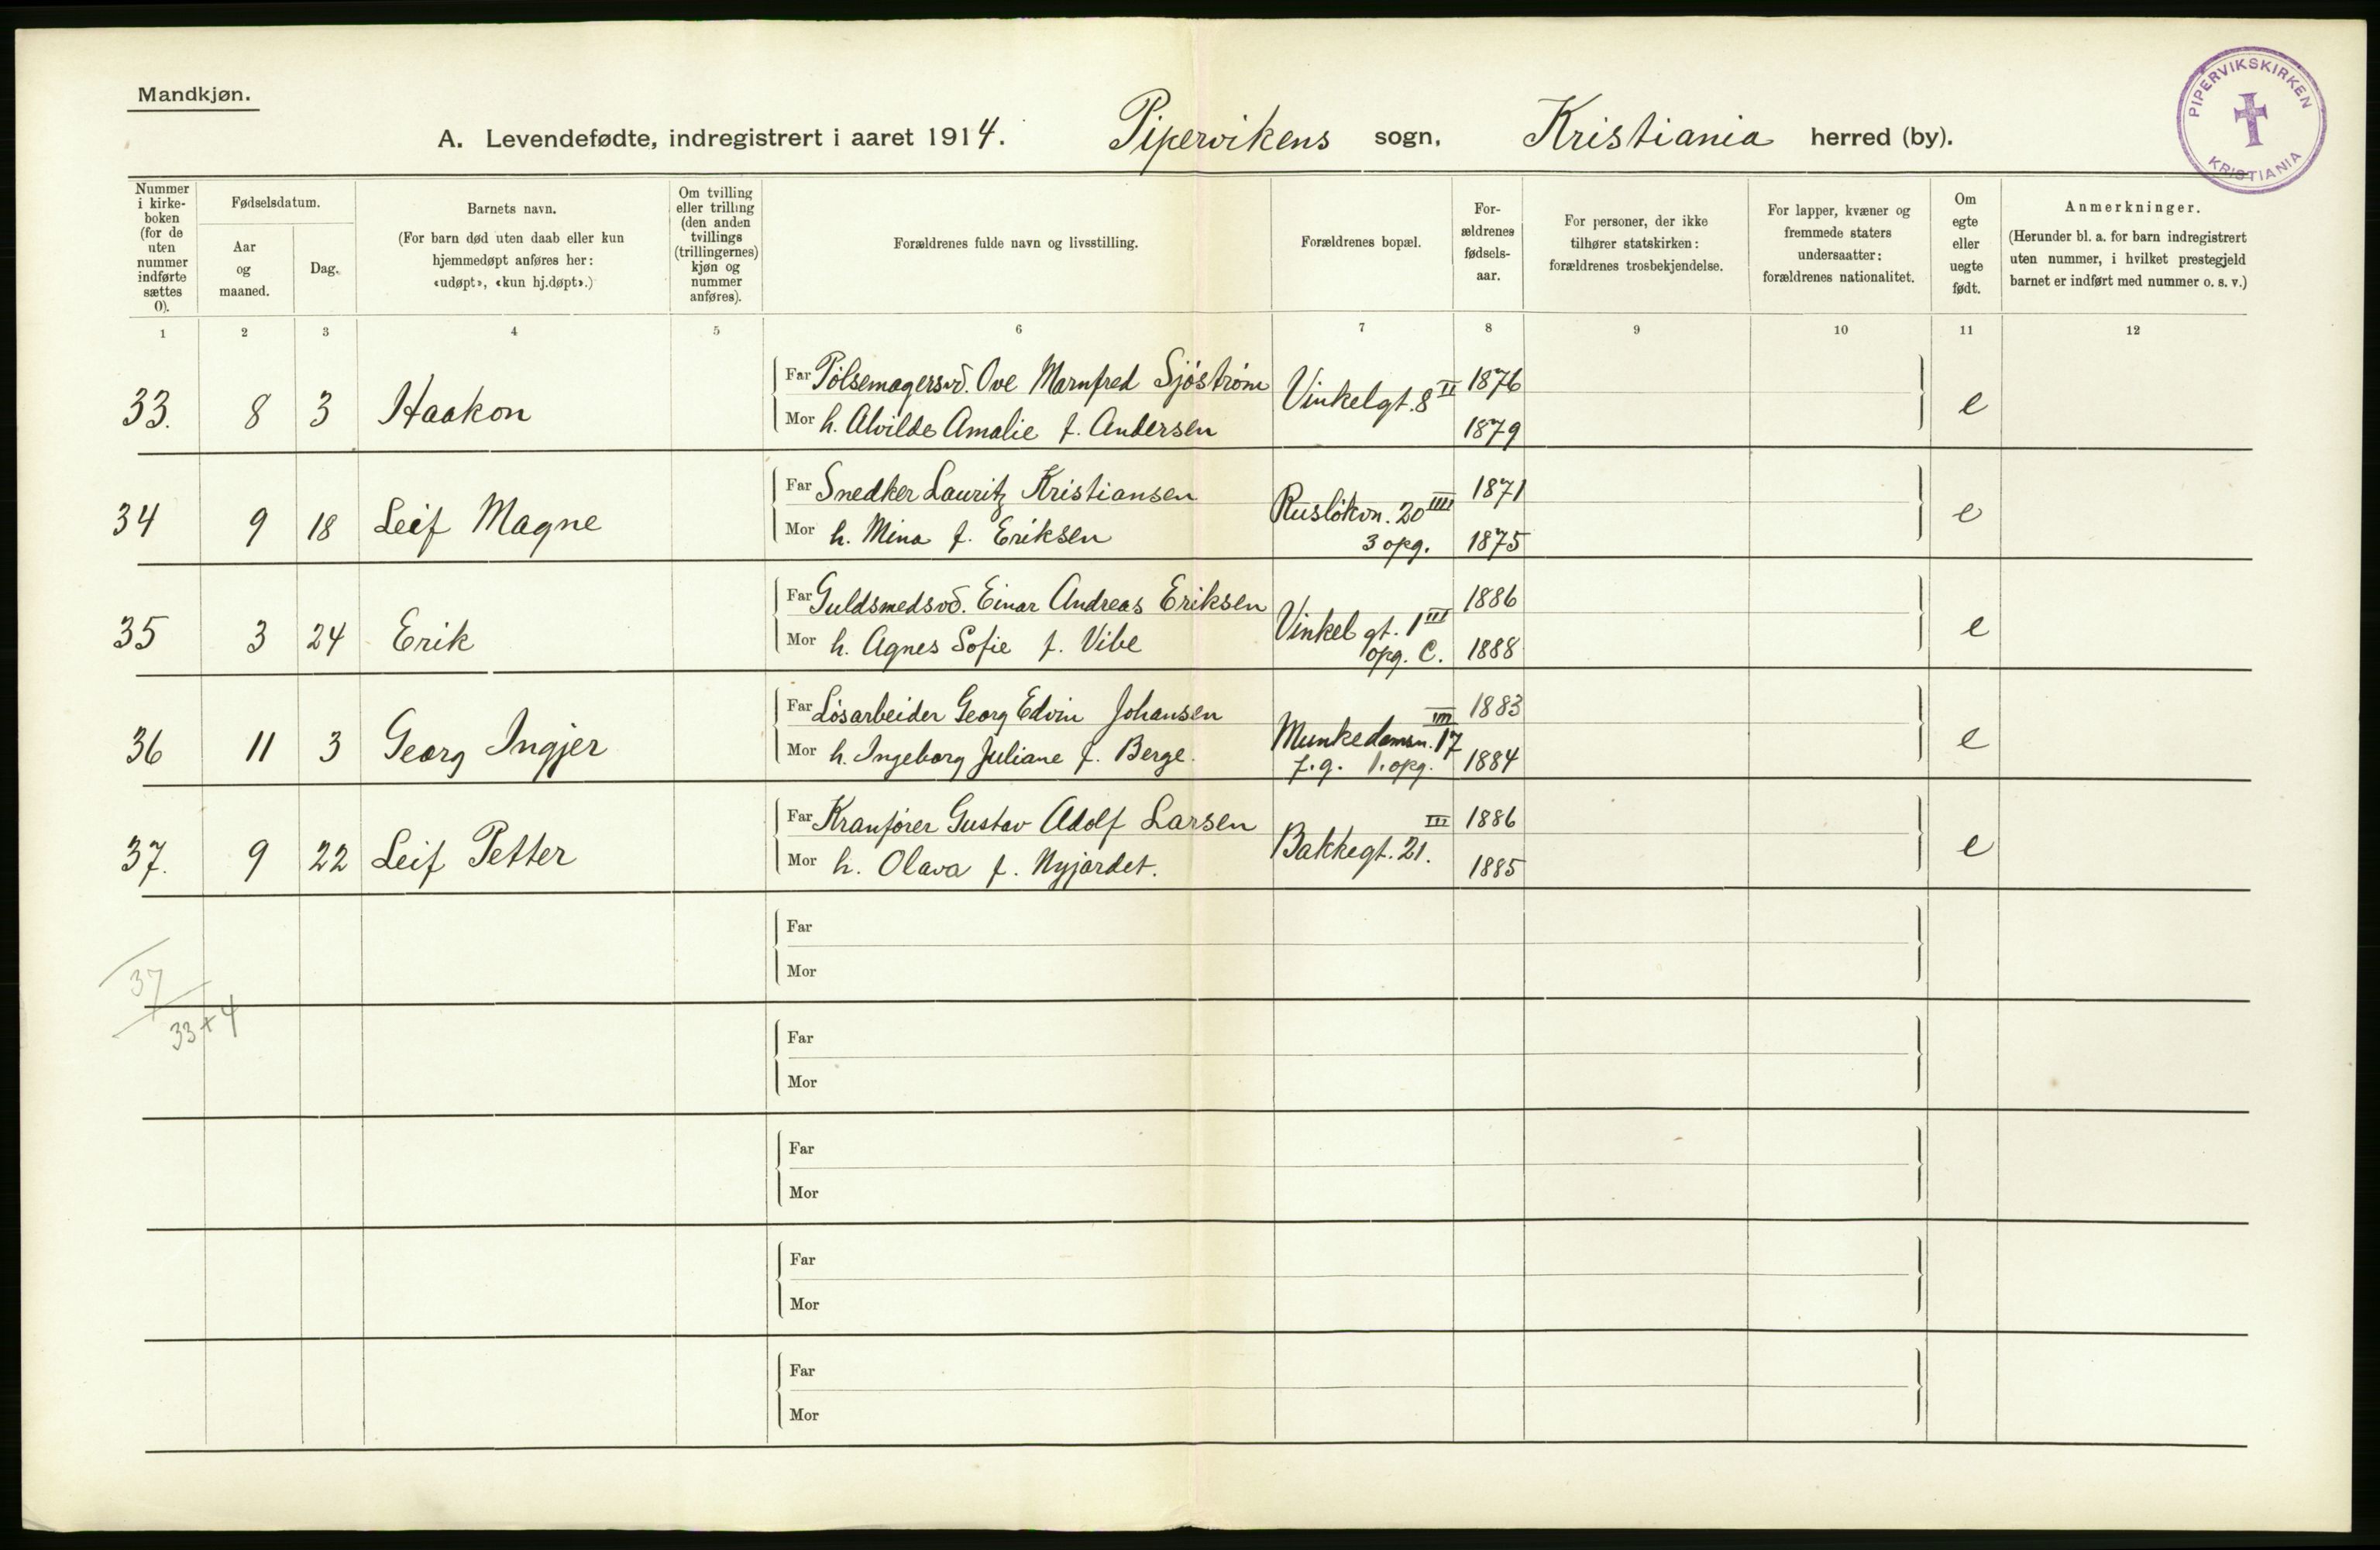 Mandkjøn.
A. Levendefødte, indregistrert i aaret 1914. Pipervikens sogn, Kristiania herred (by).
PIPERVIKSKIRKEN KRISTIANIA
Nummer i kirke-boken (for de uten nummer indførte sættes 0).
Fødselsdatum.
Aar og maaned.
Dag.
Barnets navn.
(For barn død uten daab eller kun hjemmedøpt anføres her: «udøpt», «kun hj.døpt».)
Om tvilling eller trilling (den anden tvillings (trillingernes) kjøn og nummer anføres).
Forældrenes fulde navn og livsstilling.
Forældrenes bopæl.
For-ældrenes fødsels-aar.
For personer, der ikke tilhører statskirken: forældrenes trosbekjendelse.
For lapper, kvæner og fremmede staters undersaatter: forældrenes nationalitet.
Om egte eller uegte født.
Anmerkninger.
(Herunder bl. a. for barn indregistrert uten nummer, i hvilket prestegjeld barnet er indført med nummer o. s. v.)
1 2 3 4 5 6 7 8 9 10 11 12
Far Pölsemagersvd. Ove Marnfred Sjöström Vinkelgt. 8 II 1876
33. 8 3 Haakon e
Mor h. Alvilde Amalie f. Andersen 1879
Far Snedker Lauritz Kristiansen Rusløkvn. 20 IIII 1871
34 9 18 Leif Magne e
Mor h. Mina f. Eriksen 3 opg. 1875
Far Guldsmedsvd. Einar Andreas Eriksen Vinkelgt. 1 III 1886
35 3 24 Erik e
Mor h. Agnes Sofie f. Vibe opg. C. 1888
Far Løsarbeider Georg Edvin Johansen Munkedamsv. 17 III 1883
36 11 3 Georg Ingjer e
Mor h. Ingeborg Juliane f. Berge. f.g. 1. opg. 1884
Far Kranfører Gustav Adolf Larsen Bakkegt. 21. III 1886
37. 9 22 Leif Petter e
Mor h. Olava f. Nyjordet. 1885
Far
Mor
37
33 + 4
Far
Mor
Far
Mor
Far
Mor
Far
Mor